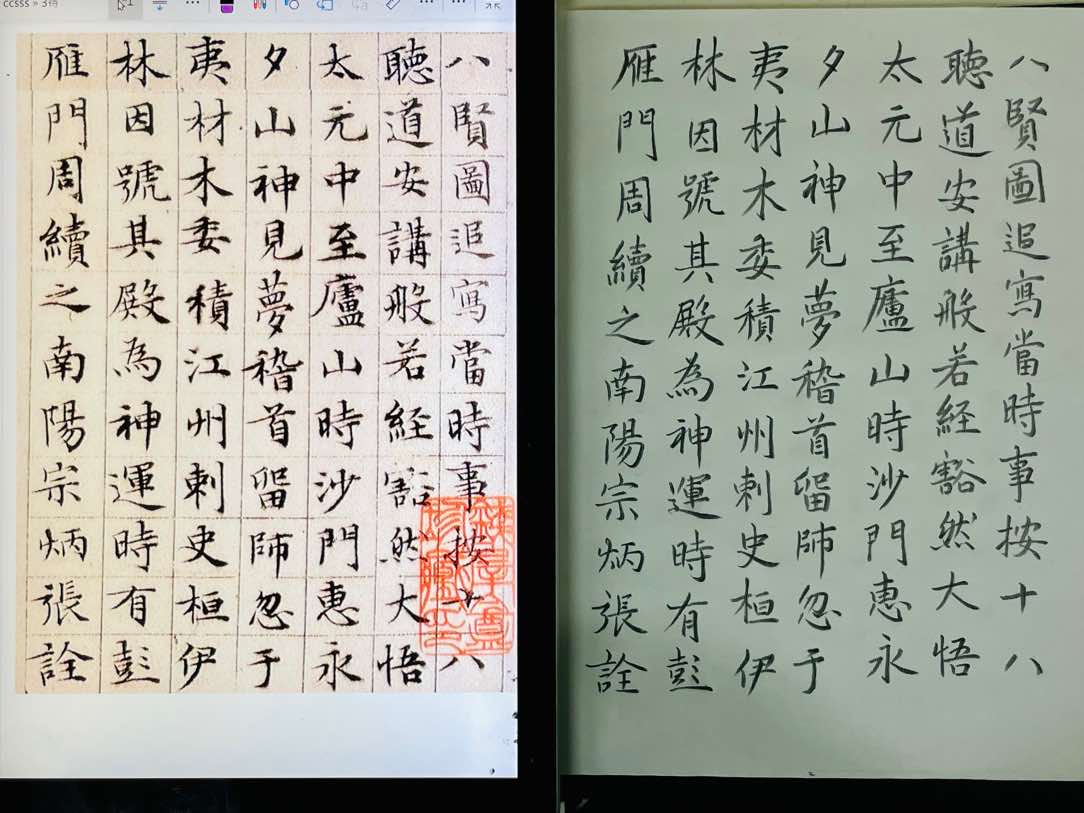 ccsss » 3倍
八賢圖追寫當時事按十八
聽道安講般若経豁然大悟
太元中至廬山時沙門惠永
夕山神見夢稽首留師忽于
夷材木委積江州刺史桓伊
林因號其殿為神運時有彭
雁門周續之南陽宗炳張詮
八賢圖追寫當時事按十八
聽道安講般若経豁然大悟
太元中至廬山時沙門惠永
夕山神見夢稽首留師忽于
夷材木委積江州刺史桓伊
林因號其殿為神運時有彭
雁門周續之南陽宗炳張詮